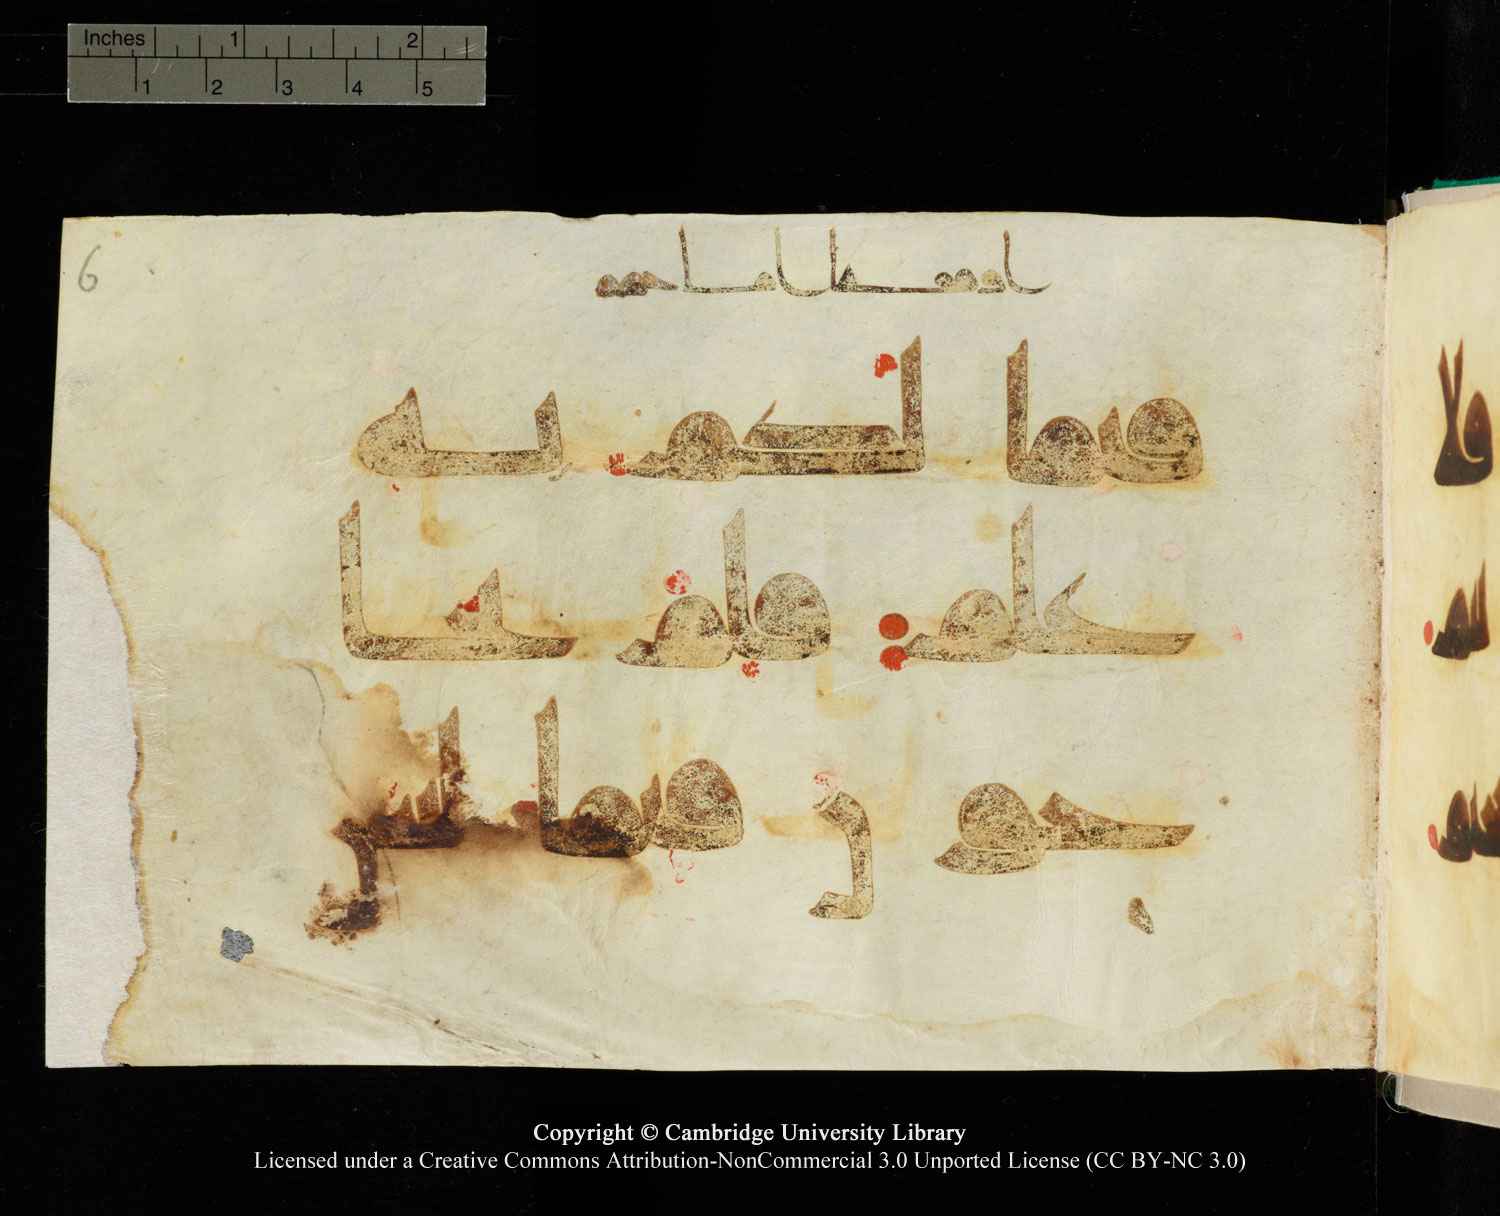 Inches 1 2
1 2 3 4 5
6
فيما لكم به
علم فلم تحا
جون فيما ليس
Copyright © Cambridge University Library
Licensed under a Creative Commons Attribution-NonCommercial 3.0 Unported License (CC BY-NC 3.0)